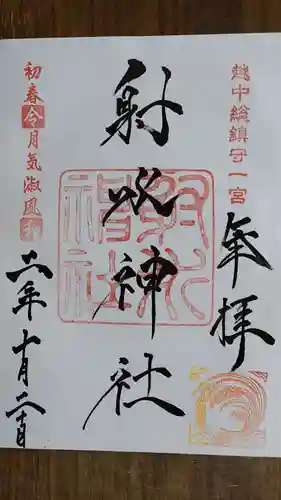 越中総鎮守一宮
奉拝
射水神社
射水神社
初春令月気淑風和
六年十月二十日